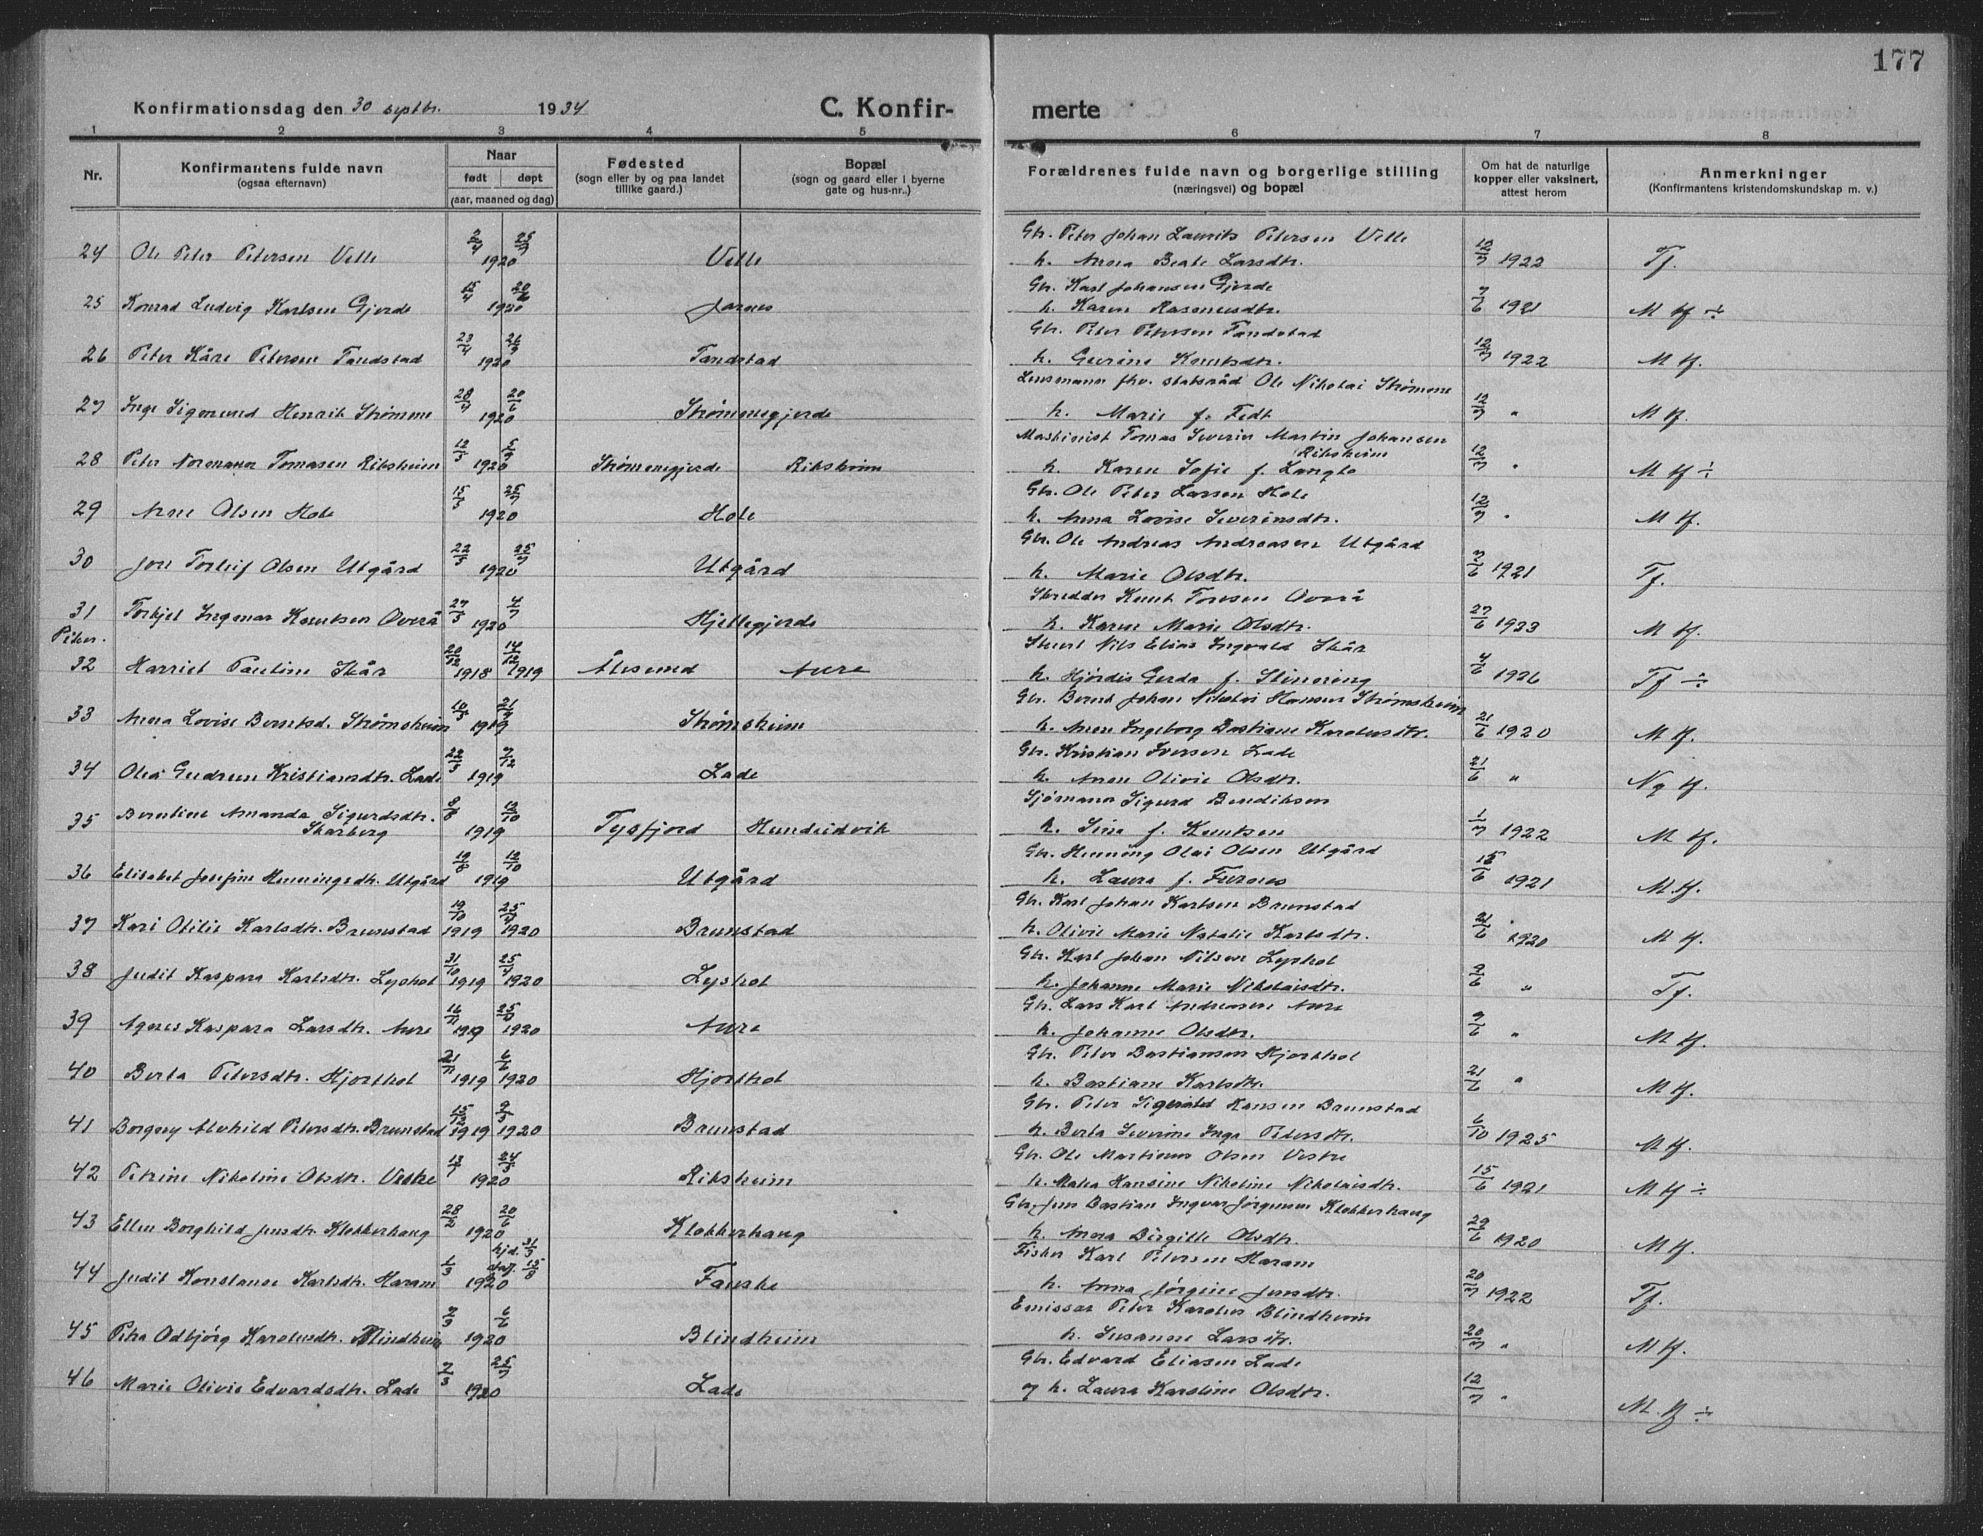 177
Konfirmationsdag den 30 septbr. 1934
C. Konfirmerte
1 2 3 4 5 6 7 8
Nr.
Konfirmantens fulde navn
(ogsaa efternavn)
Naar
født døpt
(aar, maaned og dag)
Fødested
(sogn eller by og paa landet
tillike gaard.)
Bopæl
(sogn og gaard eller i byerne
gate og hus-nr..)
Forældrenes fulde navn og borgerlige stilling
(næringsvei) og bopæl
Om hat de naturlige
kopper eller vaksinert,
attest herom
Anmerkninger
(Konfirmantens kristendomskundskap m. v.)
Gbr. Peter Johan Laurits Petersen Velle
24 Ole Peter Petersen Velle 2/4 25/7 1920 Velle h. Anna Beate Larsdtr. 12/7 1922 Tf.
Gbr. Karl Johansen Gjerde
25 Konrad Ludvig Karlsen Gjerde 15/4 20/6 1920 Jarnes h. Karen Rasmusdtr. 7/6 1921 M tf ÷
Gbr. Peter Petersen Tandstad
26 Peter Kåre Petersen Tandstad 23/4 26/9 1920 Tandstad h. Gurine Knutsdtr. 12/7 1922 M tf.
Lensmann fhv. statsråd Ole Nikolai Strømme
27 Inge Sigmund Henrik Strømme 28/4 20/6 1920 Strømmegjerde h. Marie f. Fedt 12/7 " M tf.
Maskinist Tomas Severin Martin Johansen
Riksheim
28 Peter Normann Tomasen Riksheim 12/5 5/9 1920 Strømmegjerde Riksheim h. Karen Sofie f. Langlo 12/7 " M tf ÷
Gbr. Ole Peter Larsen Hole
29 Arne Olsen Hole 15/5 25/7 1920 Hole h. Anna Lovise Severinsdtr. 12/7 " M tf.
Gbr. Ole Andreas Andreassen Utgård
30 Jon Torleif Olsen Utgård 22/5 25/7 1920 Utgård h. Marie Olsdtr. 7/6 1921 Tf.
Skredder Knut Toresen Overå
31 Torkjel Ingmar Knutsen Overå 27/5 4/7 1920 Hjellegjerde h. Karen Marie Olsdtr. 27/6 1923 M tf.
Piker.
Stuert Nils Elias Ingvald Skår
32 Harriet Pauline Skår 20/12 1918 14/12 1919 Ålesund Aure h. Hjørdis Gerda f. Stinering 4/6 1926 Tf ÷
Gbr. Bernt Johan Nikolai Hansen Strømsheim
33 Anna Lovise Berntsd. Strømsheim 10/5 21/9 1919 Strømsheim h. Anne Ingeborg Bastiane Karolusdtr. 21/6 1920 M tf.
Gbr. Kristian Iversen Lade
34 Olea Gudrun Kristiansdtr. Lade 22/5 7/12 1919 Lade h. Anne Olivie Olsdtr. 21/6 " Ng tf.
Sjømann Sigurd Bendiksen
35 Berntine Amanda Sigurdsdtr.
Skarberg 8/8 12/10 1919 Tysfjord Hundeidvik h. Sina f. Knutsen 1/7 1922 M tf.
Gbr. Henning Olai Olsen Utgård
36 Elisabet Josefine Henningsdtr. Utgård 19/8 12/10 1919 Utgård h. Laura f. Furnes 15/6 1921 M. tf.
Gbr. Karl Johan Karlsen Brunstad
37 Kari Otilie Karlsdtr. Brunstad 19/10 1919 25/4 1920 Brunstad h. Olivie Marie Natalie Karlsdtr. 21/6 1920 M tf.
Gbr. Karl Johan Nilsen Lyshol
38 Judit Kaspara Karlsdtr. Lyshol 31/10 1919 25/4 1920 Lyshol h. Johanne Marie Nikolaisdtr. 9/6 " Tf.
Gbr. Lars Karl Andreasen Aure
39 Agnes Kaspara Larsdtr. Aure 16/11 1919 25/5 1920 Aure h. Johanne Olsdtr. 9/6 " M tf.
Gbr. Peter Bastiansen Hjorthol
40 Berta Petersdtr. Hjorthol 21/11 1919 6/6 1920 Hjorthol h. Bastiane Karlsdtr. 21/6 " M tf.
Gbr. Peter Sigvald Hansen Brunstad
41 Borgny Alvhild Petersdtr. Brunstad 15/12 1919 9/5 1920 Brunstad h. Berta Severine Inga Petersdtr. 6/10 1925 M tf.
Gbr. Ole Martinus Olsen Vestre
42 Petrine Nikoline Olsdtr. Vestre 13/1 24/5 1920 Riksheim h. Matea Hansine Nikoline Nikolaisdtr. 15/6 1921 M tf ÷
Gbr. Jens Bastian Ingvar Jørgensen Klokkerhaug
43 Ellen Borghild Jensdtr. Klokkerhaug 28/2 20/6 1920 Klokkerhaug h. Anna Birgitte Olsdtr. 29/6 1920 M tf.
Fisker Karl Petersen Haram
44 Judit Konstanse Karlsdtr. Haram 1/3 hjd. 31/3 stadf. 15/8 1920 Fauske h. Anna Jørgine Jensdtr. 20/7 1922 Tf.
Emissær Peter Karolus Blindheim
45 Petra Odbjørg Karolusdtr. Blindheim 2/3 6/6 1920 Blindheim h. Susanne Larsdtr. 20/7 " M tf.
Gbr. Edvard Eliasen Lade
46 Marie Olivie Edvardsdtr. Lade 7/3 25/7 1920 Lade og h. Laura Karoline Olsdtr. 12/7 " M. tf ÷